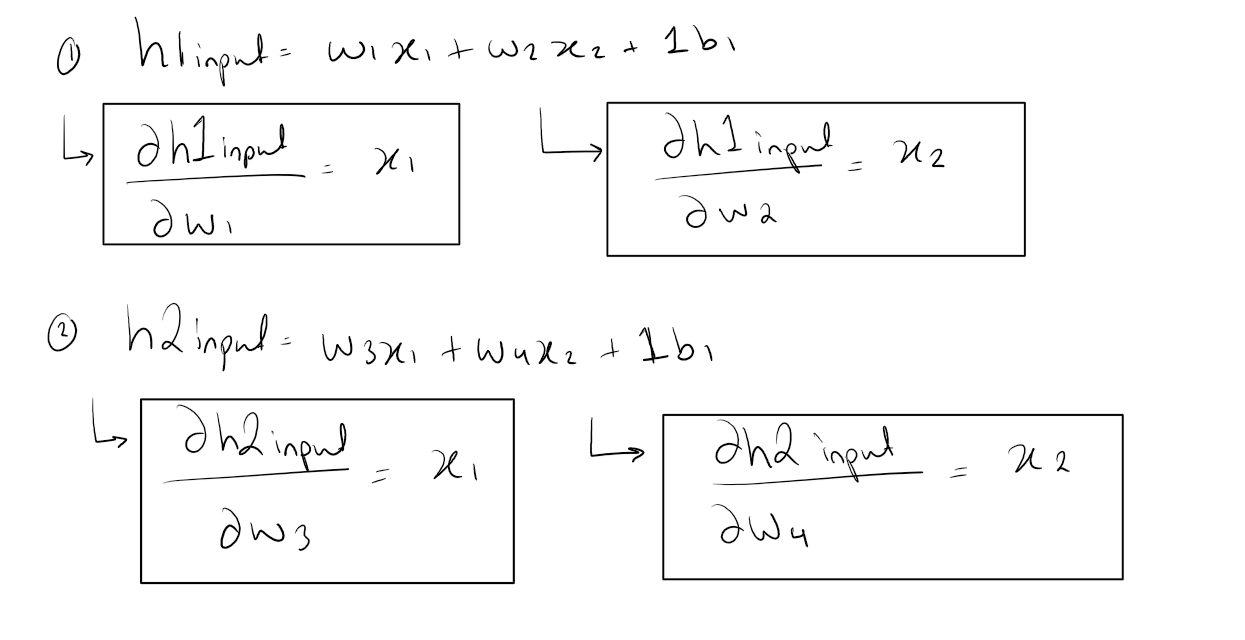 ① h1input = w1x1 + w2x2 + 1b1
↳ ∂h1input/∂w1 = x1 ↳ ∂h1input/∂w2 = x2
② h2input = w3x1 + w4x2 + 1b1
↳ ∂h2input/∂w3 = x1 ↳ ∂h2input/∂w4 = x2